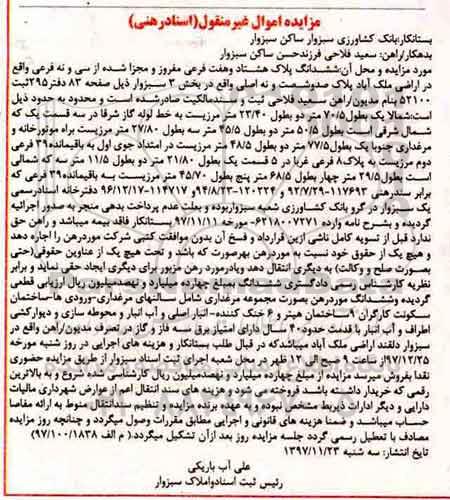 مزایده اموال غیرمنقول(اسنادرهنی)
بستانکار:بانک کشاورزی سبزوار ساکن سبزوار
بدهکار/راهن: سعید فلاحی فرزندحسن ساکن سبزوار
مورد مزایده و محل آن:ششدانگ پلاک هشتاد وهفت فرعی مفروز و مجزا شده از سی و نه فرعی واقع
در اراضی ملک آباد پلاک صدوشصت و نه اصلی واقع در بخش ۳ سبزوار ذیل صفحه ۸۳ دفتر۲۹۵ثبت
۵۲۱۰۰ بنام مدیون/راهن سعید فلاحی ثبت و سندمالکیت صادرشده است و محدود به حدود ذیل
است:شمالا یک بطول۷۰/۵ متر دو بطول ۲۳/۴۰ متر مرزیست به خط لوله گاز شرقا در سه قسمت یک که
شمال شرقی است بطول ۵۰/۵ متر دو بطول ۴۵/۵ متر سه بطول ۲۷/۸۰ متر مرزیست براه موتورخانه و
مرغداری جنوبا یک بطول۷۷/۵ متر دو بطول ۴۸/۵ متر مرزیست در امتداد جوی اول به باقیمانده۳۹ فرعی
دوم مرزیست به پلاک۸ فرعی غربا در ۵ قسمت یک بطول ۲۱/۸۰ متر دو بطول ۱۱/۵ متر سه که شمالی
است بطول۲۹/۵ متر چهار بطول ۶۸/۵ متر پنج بطول ۴۵/۷۰ متر مرزیست بـه باقیمانده ۳۹ فرعی که
برابر سندرهنی ۱۱۷۶۹۳-۹۲/۷/۲۹ و ۱۲۰۲۲۶-۹۴/۸/۲۳و ۱۱۴۷۱۷-۹۶/۱۲/۱۷ دفترخانه اسنادرسمی
یک سبزوار در گرو بانک کشاورزی شعبه سبزواربوده و بعلت عدم پرداخت بدهی منجر به صدور اجرائیه
گردیده و بشرح نامه وارده ۰۷۲۷۱-۶۲۱۸۰-مورخه ۹۷/۱۱/۱۱ بستانکارفاقد بیمه میباشد و راهن حق
ندارد قبل از تسویه کامل ناشی ازین قرارداد و فسخ آن بدون موافقت کتبی شرکت موردرهن را اجاره دهد
و هیچ یک از حقوق خود نسبت به موردرهن بهرصورت که باشد و تحت هیچ یک از عناوین حقوقی(حتی
بصورت صلح و وکالت) به دیگری انتقال دهد ویادرمورد رهن مزبور برای دیگری ایجاد حقی نماید و برابر
نظریه کارشناس رسمی دادگستری ششدانگ بمبلغ چهارده میلیارد و نهصدمیلیون ریال ارزیابی قطعی
گردیده وششدانگ موردرهن بصورت مجموعه مرغداری شامل سالنهای مرغداری-ورودی ها-ساختمان
سکونت کارگران ۹ساختمان هیتر و ۶ خنک کننده-انبار اصلی و آب انبار و محوطه سازی و دیوارکشی
اطراف و آب انبار با قدمت حدود۴۰ سال دارای امتیاز برق سه فاز و گاز در تصرف مدیون/راهن واقع در
سبزوار دلقند اراضی ملک آباد میباشدکه در قبال طلب بستانکار و هزینه های اجرایی در روز شنبه مورخه
۹۷/۱۲/۲۵از ساعت ۹ صبح الی ۱۲ ظهر در محل شعبه اجرای ثبت اسناد سبزوار از طریق مزایده حضوری
نقدا بفروش میرسد مزایده از مبلغ چهارده میلیارد و نهصدمیلیون ریال کارشناسی شده شروع و به بالاترین
رقمی که خریدار داشته باشد فروخته می شود و هزینه های سند انتقال اعم از عوارض شهرداری مالیات
دارایی و دیگر ادارات ذیربط مشخص نبوده و به عهده برنده مزایده و تنظیم سندانتقال منوط به ارائه مفاصا
حساب میباشد و ضمنا هزینه های قانونی و اجرایی مطابق مقررات وصول میگردد و چنانچه روز مزایده
مصادف با تعطیل رسمی گردد جلسه مزایده روز بعد ازآن تشکیل میگردد.( م الف ۹۷/۱۰۰/۱۸۳۸)
تاریخ انتشار: سه شنبه ۱۳۹۷/۱۱/۲۳
علی آب باریکی
رئیس ثبت اسنادواملاک سبزوار